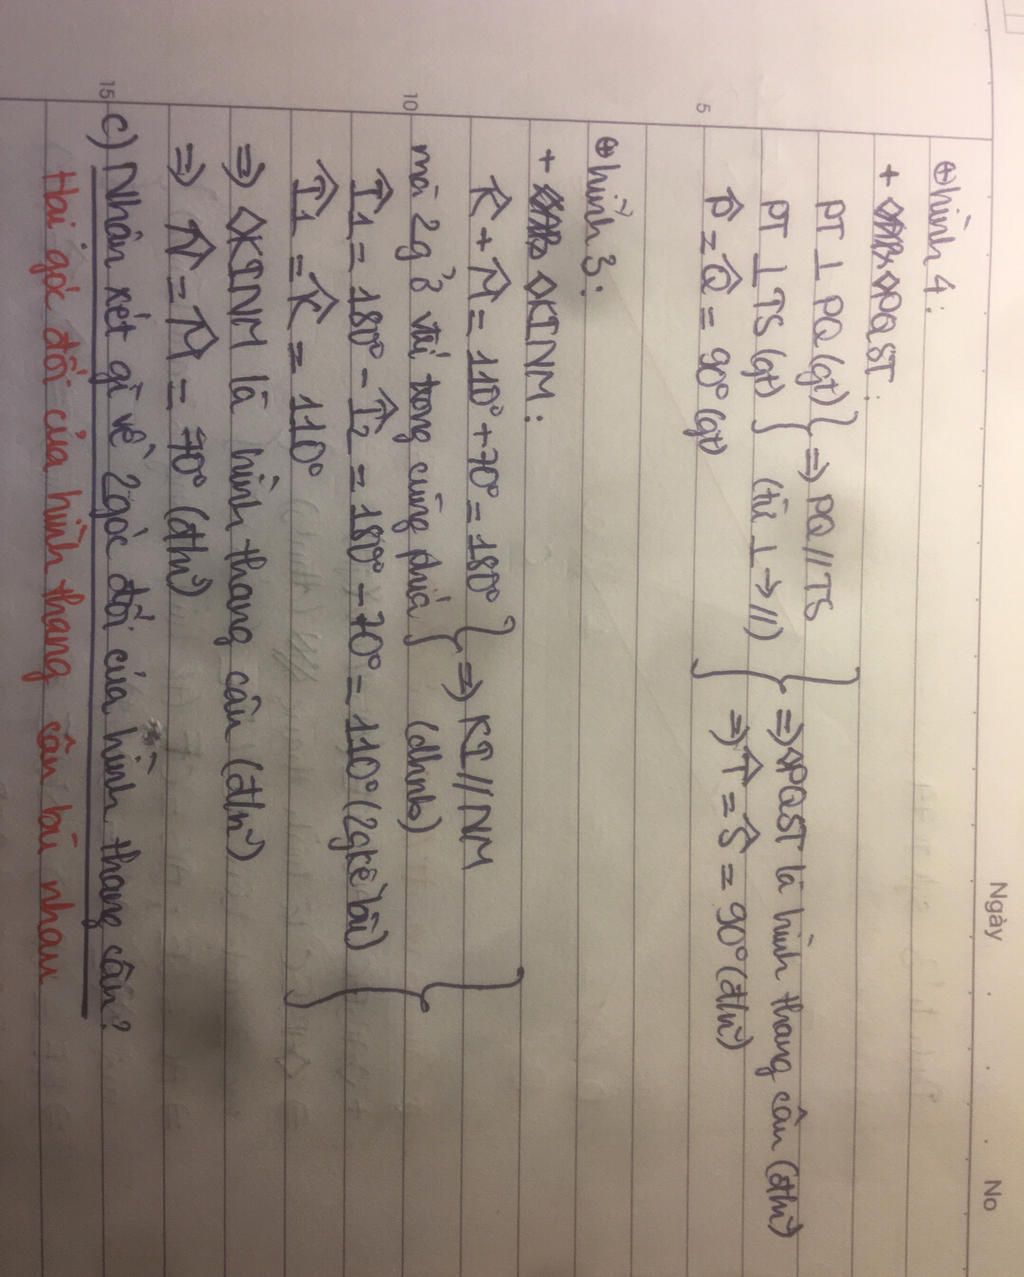 Ngày No
⊕ hình 4:
+ ◇PQST:
PT ⊥ PQ (gt) } => PQ // TS
PT ⊥ TS (gt) } (từ ⊥ → //) } => ◇PQST là hình thang cân (đ/n)
5
P̂ = Q̂ = 90° (gt) => T̂ = Ŝ = 90° (đ/n)
⊕ hình 3:
+ ◇KINM:
K̂ + M̂ = 110° + 70° = 180° } => KI // NM
10
mà 2g ở vtrí trong cùng phía } (dhnb)
Î1 = 180° - Î2 = 180° - 70° = 110° (2g kề bù)
Î1 = K̂ = 110°
=> ◇KINM là hình thang cân (đ/n)
=> N̂ = M̂ = 70° (đ/n)
15
c) Nhận xét gì về 2 góc đối của hình thang cân?
Hai góc đối của hình thang cân bù nhau